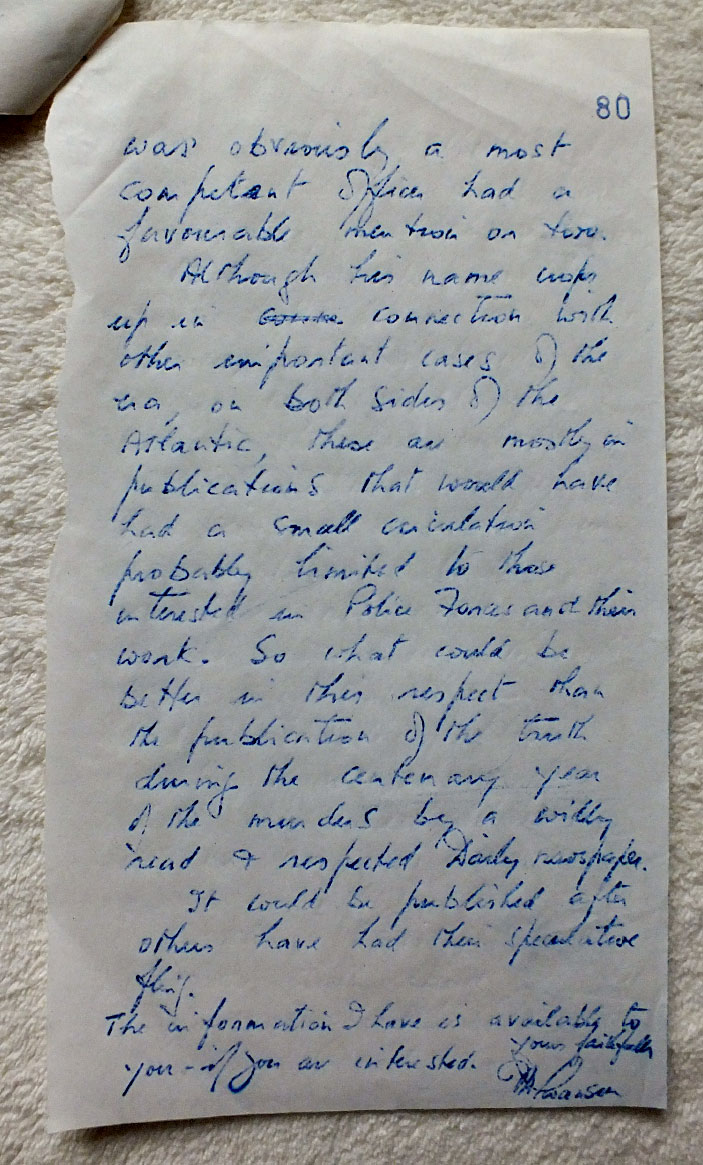 80
was obviously a most
competent Officer had a
favourable mention or two.
Although his name crops
up in connection with
other important cases of the
era, on both sides of the
Atlantic, these are mostly in
publications that would have
had a small circulation
probably limited to those
interested in Police Forces and their
work. So what could be
better in this respect than
the publication of the truth
during the centenary year
of the murders by a widely
read & respected Daily newspaper.
It could be published after
others have had their speculative
fling.
The information I have is available to
you - if you are interested.
Yours faithfully
Swanson